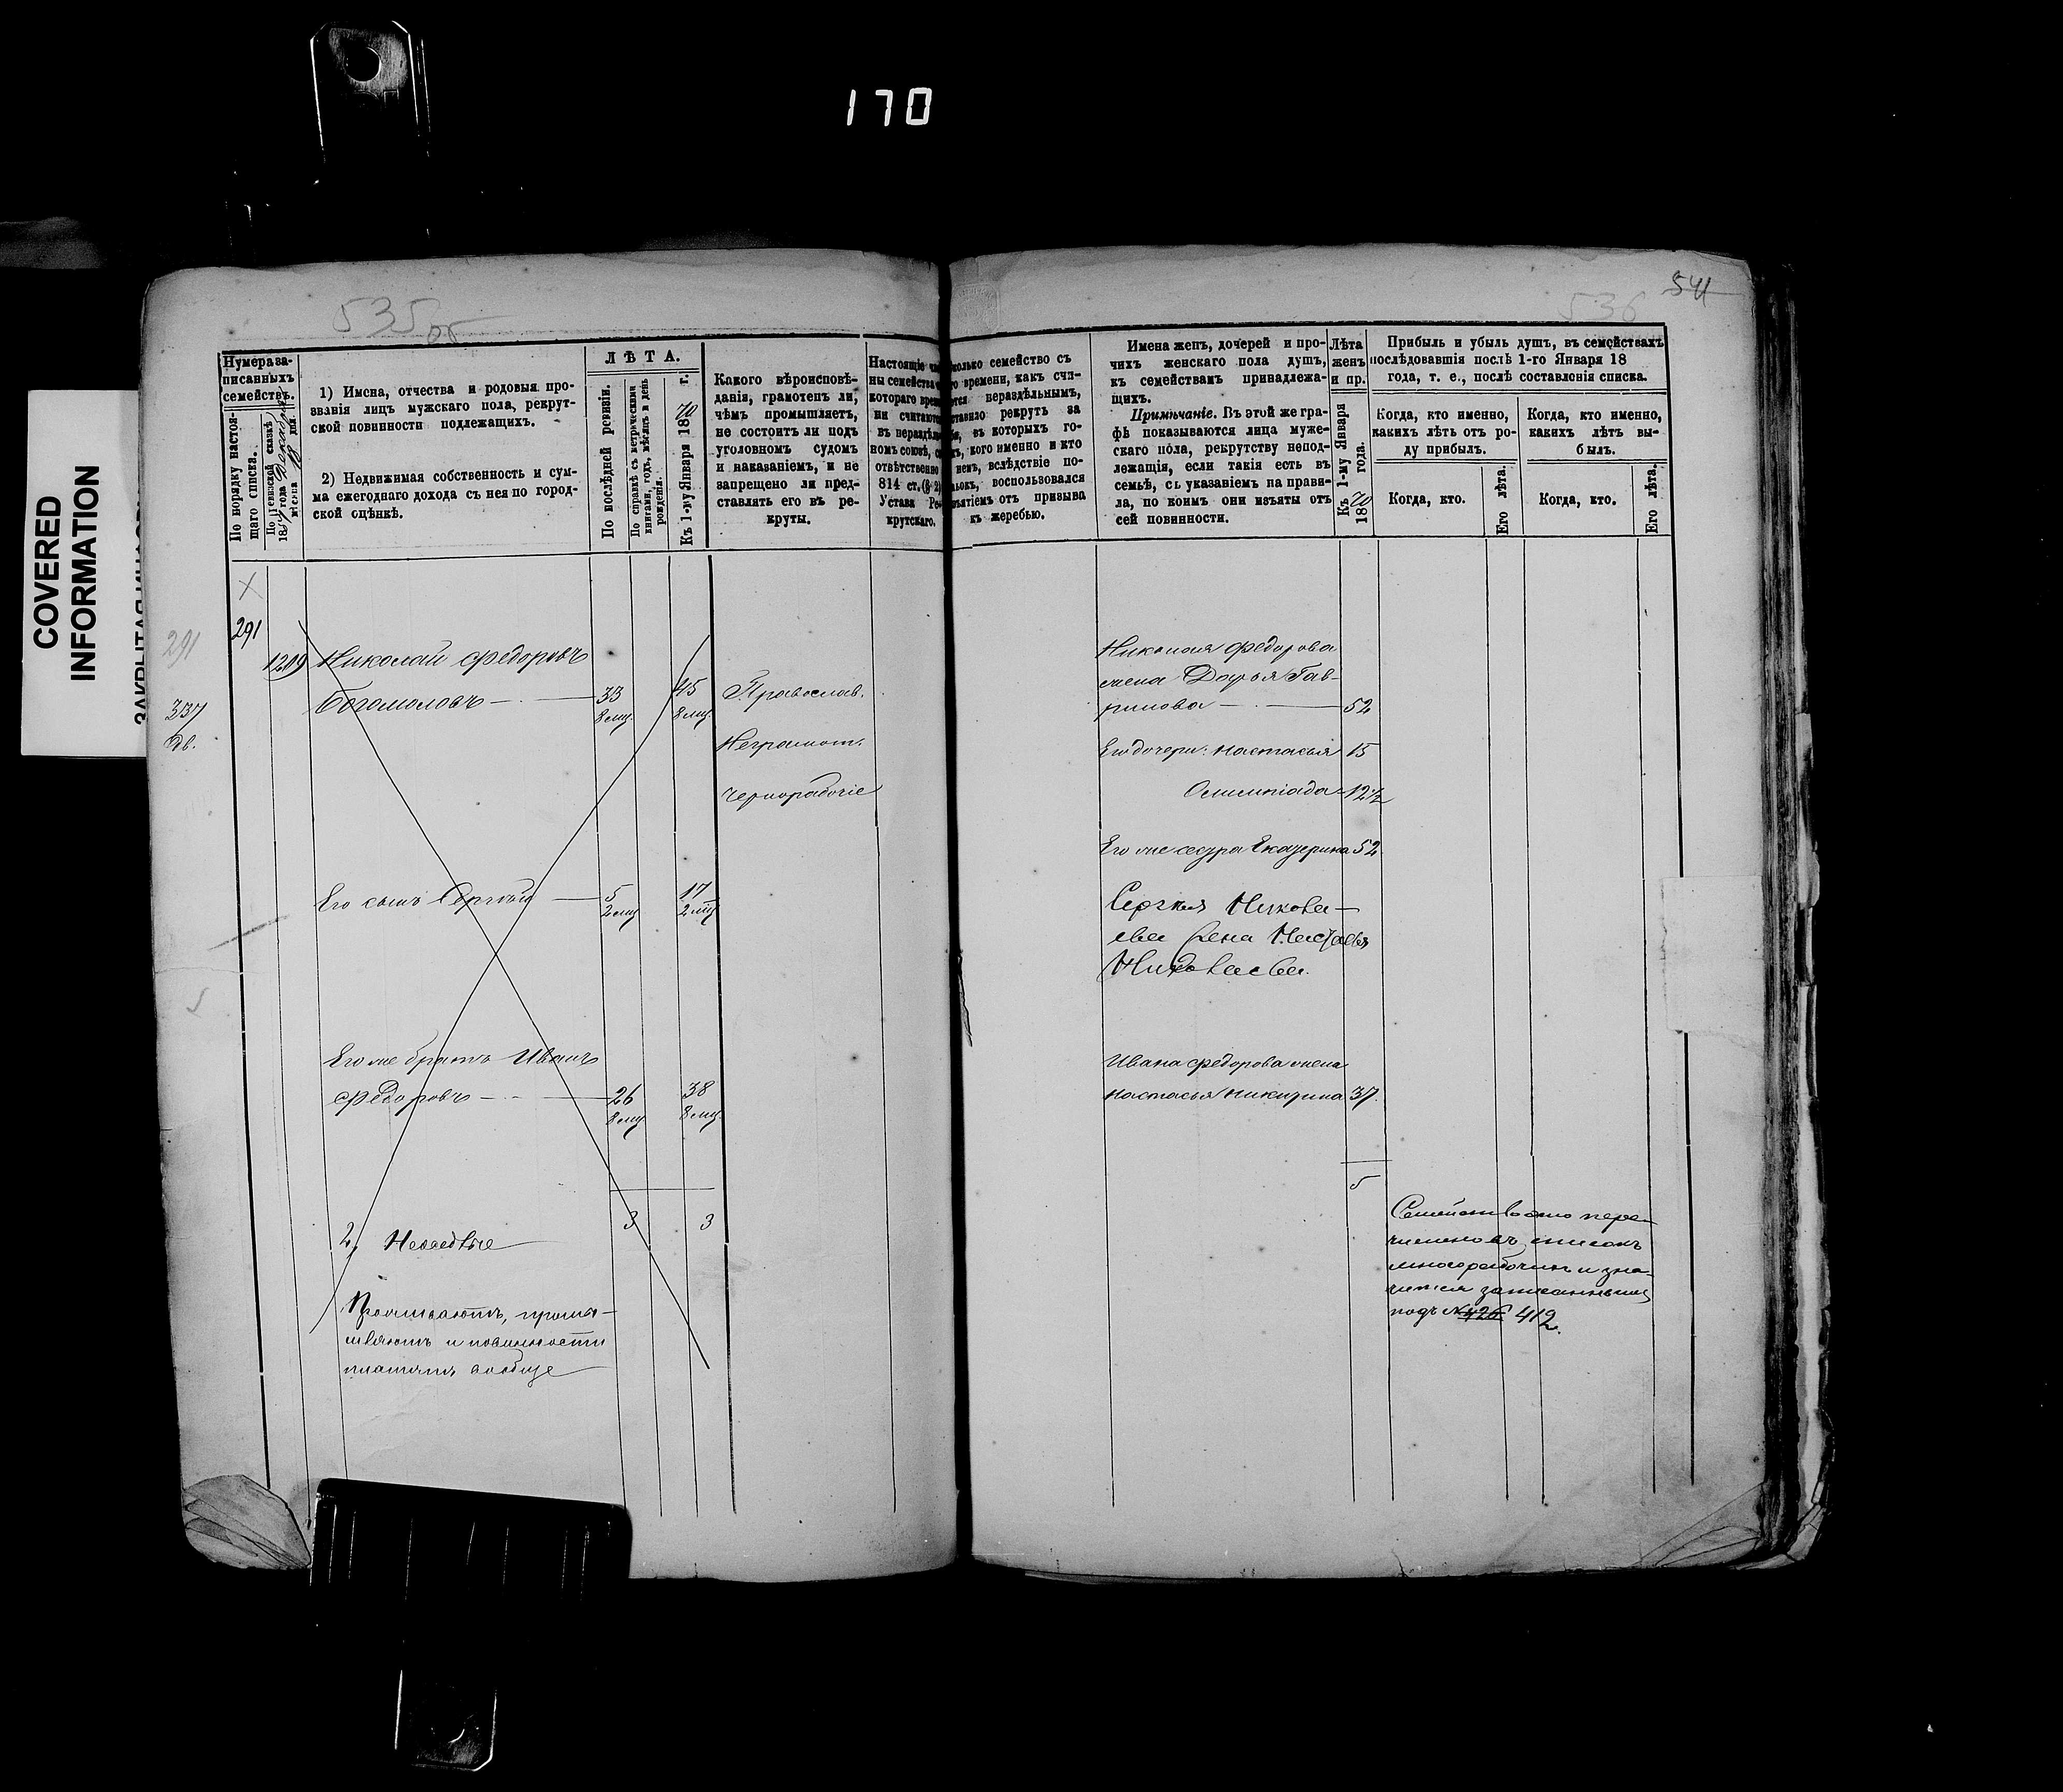 170
COVERED
INFORMATION
535 об
536
541
Нумера за-
писанныхъ
семействъ.
По порядку настоя-
щаго списка.
По ревизской сказкѣ
1) Имена, отчества и родовыя про-
званія лицъ мужскаго пола, рекрут-
ской повинности подлежащихъ.
2) Недвижимая собственность и сум-
ма ежегоднаго дохода съ нея по город-
ской оцѣнкѣ.
ЛѢТА.
По послѣдней ревизіи.
По справкѣ съ метрическими
книгами, годъ, мѣсяцъ и день
рожденія.
Къ 1-му Января 1870 г.
Какого вѣроисповѣ-
данія, грамотенъ ли,
чѣмъ промышляетъ,
не состоитъ ли подъ
уголовномъ судомъ
и наказаніемъ, и не
запрещено ли пред-
ставлять его въ ре-
круты.
Настоящіе
ны семейства
котораго
ни считают
въ нераздѣл
номъ союзѣ,
отвѣтственно
814 ст. (§ 2)
Устава Ре-
крутскаго.
семейство съ
времени, какъ счи-
нераздѣльнымъ,
рекрутъ за
въ которыхъ го-
кого именно и кто
вслѣдствіе по-
воспользовался
отъ призыва
къ жеребью.
Имена женъ, дочерей и про-
чихъ женскаго пола душъ,
къ семействамъ принадлежа-
щихъ.
Примѣчаніе. Въ этой же гра-
фѣ показываются лица муже-
скаго пола, рекрутству непод-
лежащія, если такія есть въ
семьѣ, съ указаніемъ на прави-
ла, по коимъ они изъяты отъ
сей повинности.
Лѣта
женъ
и пр.
Къ 1-му Января
1870 года.
Прибыль и убыль душъ, въ семействахъ
послѣдовавшія послѣ 1-го Января 18
года, т. е., послѣ составленія списка.
Когда, кто именно,
какихъ лѣтъ отъ ро-
ду прибылъ.
Когда, кто именно,
какихъ лѣтъ вы-
былъ.
Когда, кто.
Его лѣта.
Когда, кто.
Его лѣта.
291
337
291
1209
Николай Федоровъ
Богомоловъ
33
8 мц
45
8 мц
Православ.
Неграмот.
Чернорабочіе
Николая Федорова
жена Дарья Гав-
рилова 52
Его дочери: Настасья 15
Олимпіада 12 1/2
Его же сестра Екатерина 52
Его сынъ Сергѣй
5
2 мц
17
2 мц
Сергѣя Никола-
ева жена Настасья
Николаева.
Его же братъ Иванъ
Федоровъ
26
8 мц
38
8 мц
Ивана Федорова жена
Настасья Никитина 37.
3
3
5
2, Неосѣдлые
Проживаютъ, промы-
шляютъ и повинности
платятъ вообще
Семейство это пере-
числено въ списокъ
многорабочихъ и зна-
чится записаннымъ
подъ № 426 412.